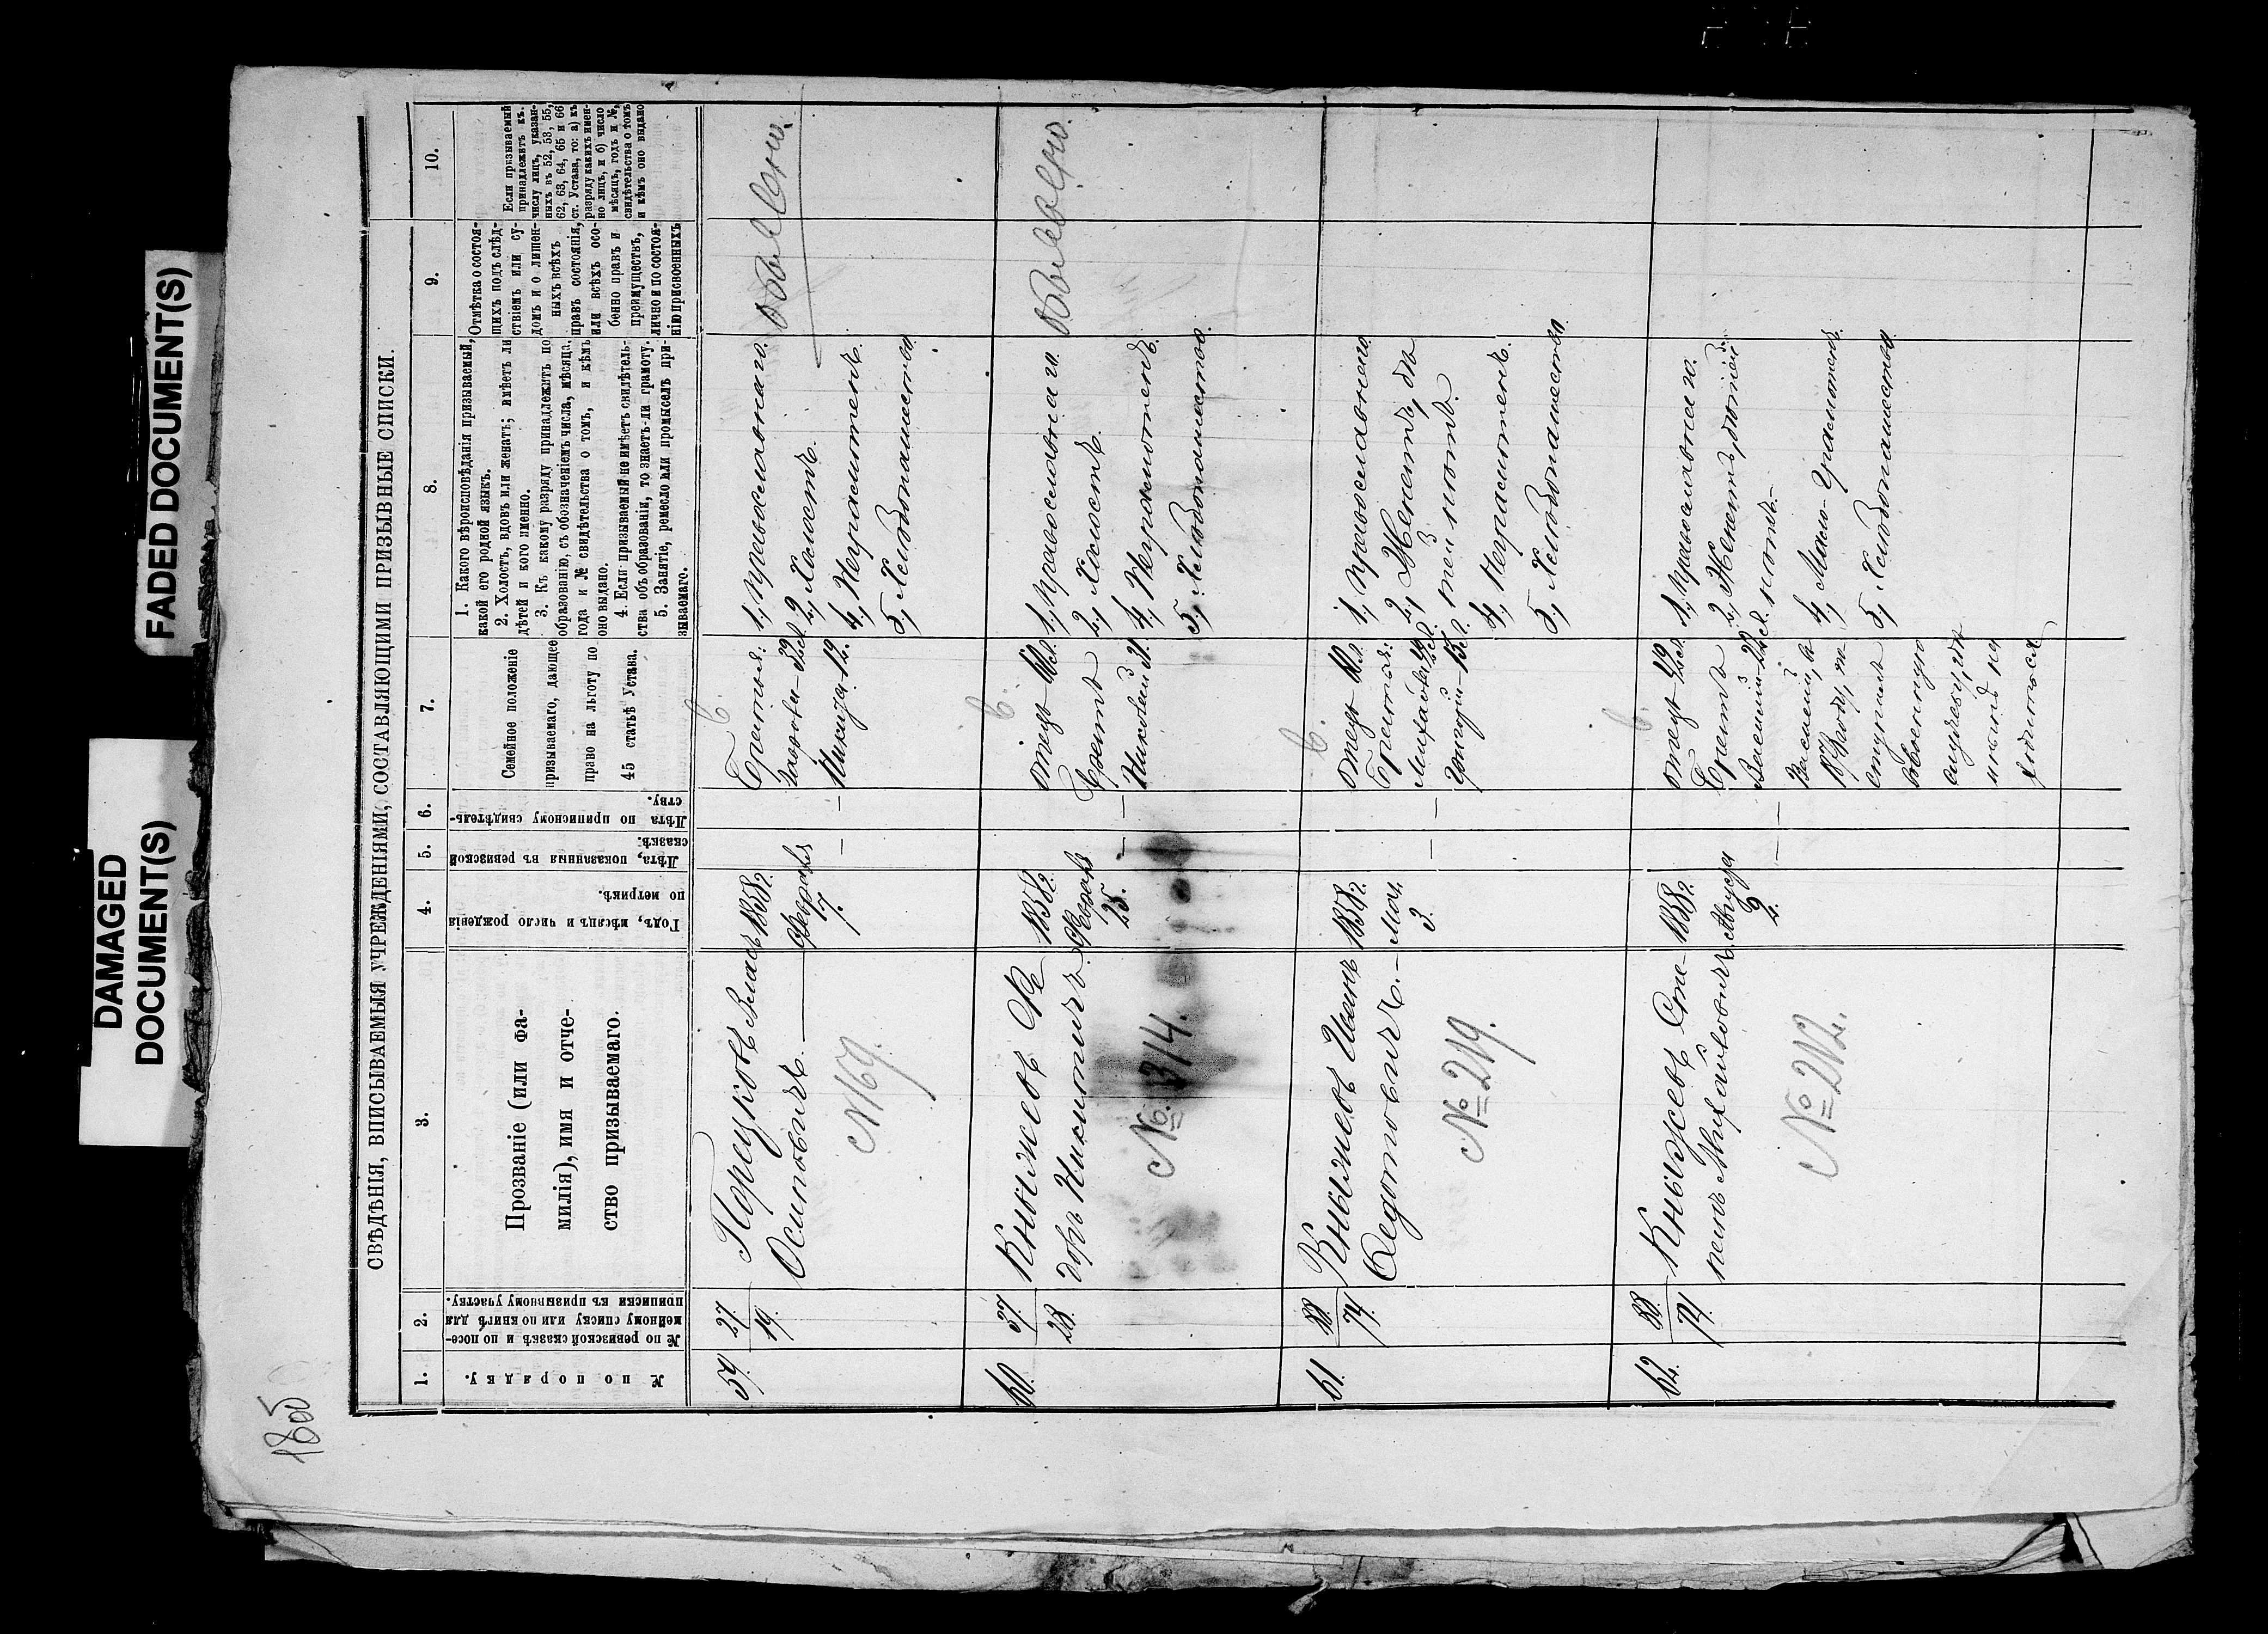 FADED DOCUMENT(S)
DAMAGED
DOCUMENT(S)
СВѢДѢНІЯ, ВПИСЫВАЕМЫЯ УЧРЕЖДЕНІЯМИ, СОСТАВЛЯЮЩИМИ ПРИЗЫВНЫЕ СПИСКИ.
1.
2.
3.
4.
5.
6.
7.
8.
9.
10.
№ по порядку.
№ по ревизской сказкѣ и по посе-
мейному списку или по книгѣ для
приписки къ призывному участку.
Прозваніе (или фа-
милія), имя и отче-
ство призываемаго.
Годъ, мѣсяцъ и число рожденія
по метрикѣ.
Лѣта, показанныя въ ревизской
сказкѣ.
Лѣта по приписному свидѣтель-
ству.
Семейное положеніе
призываемаго, дающее
право на льготу по
45 статьѣ Устава.
1. Какого вѣроисповѣданія призываемый,
какой его родной языкъ.
2. Холостъ, вдовъ или женатъ; имѣетъ ли
дѣтей и кого именно.
3. Къ какому разряду принадлежитъ по
образованію, съ обозначеніемъ числа, мѣсяца,
года и № свидѣтельства о томъ, и кѣмъ
оно выдано.
4. Если призываемый не имѣетъ свидѣтель-
ства объ образованіи, то знаетъ-ли грамоту.
5. Занятіе, ремесло или промыселъ при-
зываемаго.
Отмѣтка о состоя-
щихъ подъ слѣд-
ствіемъ или су-
домъ и о лишен-
ныхъ всѣхъ
правъ состоянія,
или всѣхъ осо-
бенно правъ и
преимуществъ,
лично и по состоя-
нію присвоенныхъ
Если призываемый
принадлежитъ къ
числу лицъ, указан-
ныхъ въ 52, 53, 55,
62, 63, 64, 65 и 66
ст. Устава, то: а) къ
разряду какихъ имен-
но лицъ, и б) число
мѣсяцъ, годъ и №,
свидѣтельства о томъ
и кѣмъ оно выдано
59.
27.
19.
Порецковъ Власъ
Осиповичъ.
№ 169.
1858 г.
Февраля
7.
—
—
Братья:
Никита 12.
1., Православнаго.
2., Холостъ.
4., Неграмотенъ.
5., Хлебопашество.
60.
37.
28.
Кныжевъ Ѳе
доръ Никитичъ
№ 314.
1858 г.
Февраля
25.
—
—
отецъ 60 л.
Братъ
Николай 31.
1., Православнаго.
2., Холостъ.
4., Неграмотенъ.
5., Хлебопашество.
61.
88.
74.
Кныжевъ Иванъ
Ѳедотовичъ.
№ 219.
1858 г.
Мая
3.
—
—
отецъ 60 л.
Братья:
Григорій 15 л.
1., Православнаго.
2., Женатъ, дѣ
тей нѣтъ.
4., Неграмотенъ.
5., Хлебопашество.
62.
88.
74.
Кныжевъ Сте-
панъ Михайловичъ
№ 212.
1858 г.
Августа
2.
—
—
Братъ
Василій
военную
1., Православнаго.
2., Женатъ, дѣтей
нѣтъ.
4., Мало-грамотенъ.
5., Хлебопашество.